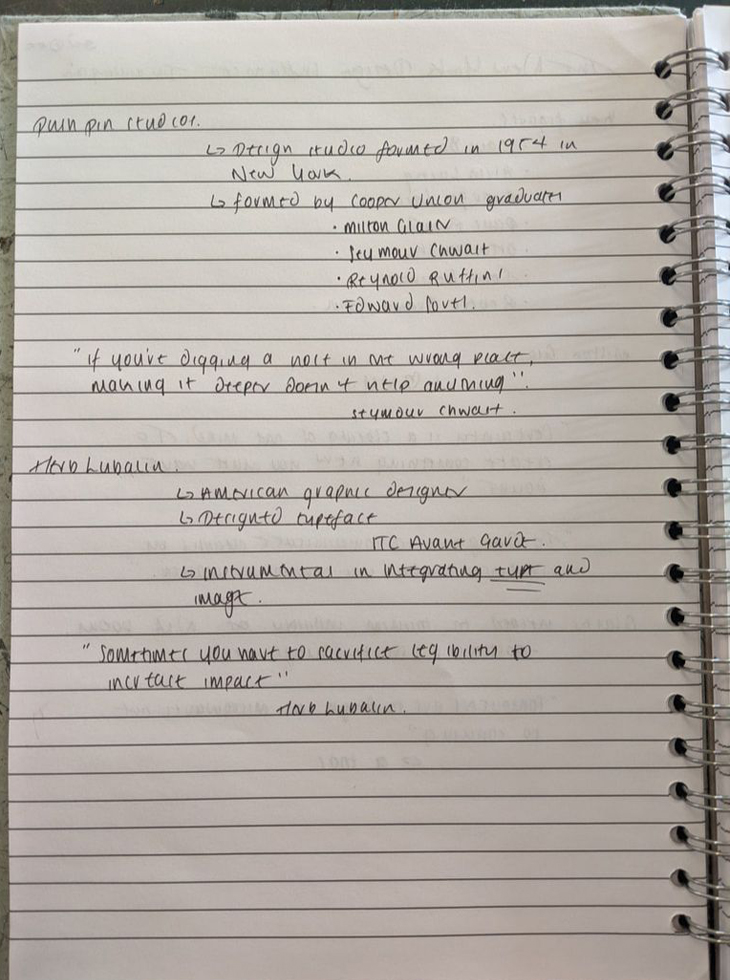 Push pin studios.
↳ Design studio formed in 1954 in
New York.
↳ formed by Cooper Union graduates
· Milton Glaser
· Seymour Chwast
· Reynold Ruffins
· Edward Sorel.
"if you're digging a hole in the wrong place,
making it deeper doesn't help anything".
Seymour Chwast.
Herb Lubalin
↳ American graphic designer
↳ Designed typeface
ITC Avant Garde.
↳ instrumental in integrating type and
image.
"Sometimes you have to sacrifice legibility to
increase impact"
Herb Lubalin.